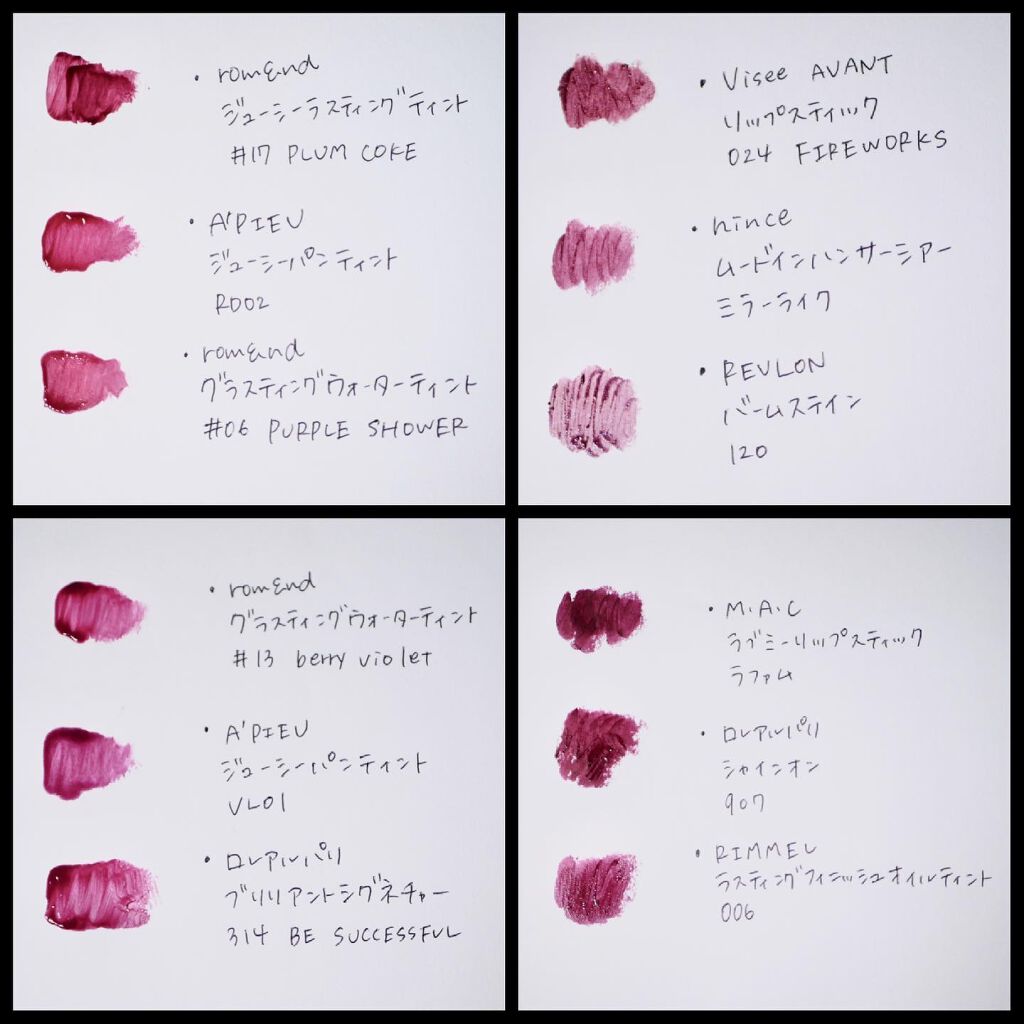 ・rom&nd
ジューシーラスティングティント
#17 PLUM COKE
・A'PIEU
ジューシーパンティント
RD02
・rom&nd
グラスティングウォーターティント
#06 PURPLE SHOWER
・Visee AVANT
リップスティック
024 FIREWORKS
・hince
ムードインハンサーシアー
ミラーライク
・REVLON
バームステイン
120
・rom&nd
グラスティングウォーターティント
#13 berry violet
・A'PIEU
ジューシーパンティント
VL01
・ロレアルパリ
ブリリアントシグネチャー
314 BE SUCCESSFUL
・M・A・C
ラブミーリップスティック
ラファム
・ロレアルパリ
シャインオン
907
・RIMMEL
ラスティングフィニッシュオイルティント
006